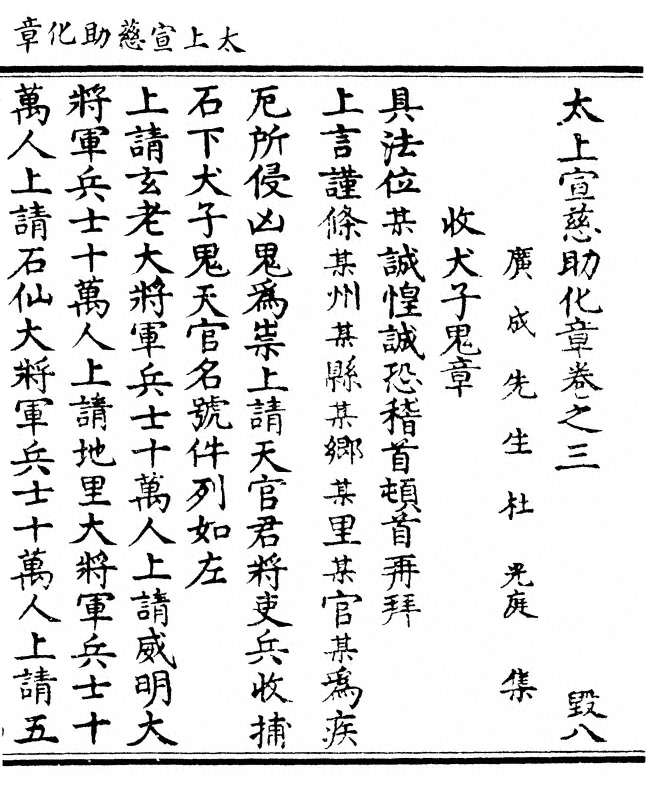 太上宣慈助化章
太上宣慈助化章卷之三 毀八
廣成先生杜光庭集
收犬子鬼章
具法位某誠惶誠恐稽首頓首再拜
上言謹條某州某縣某鄉某里某官某爲疾
厄所侵凶鬼爲祟上請天官君將吏兵收捕
石下犬子鬼天官名號件列如左
上請玄老大將軍兵士十萬人上請威明大
將軍兵士十萬人上請地里大將軍兵士十
萬人上請石仙大將軍兵士十萬人上請五